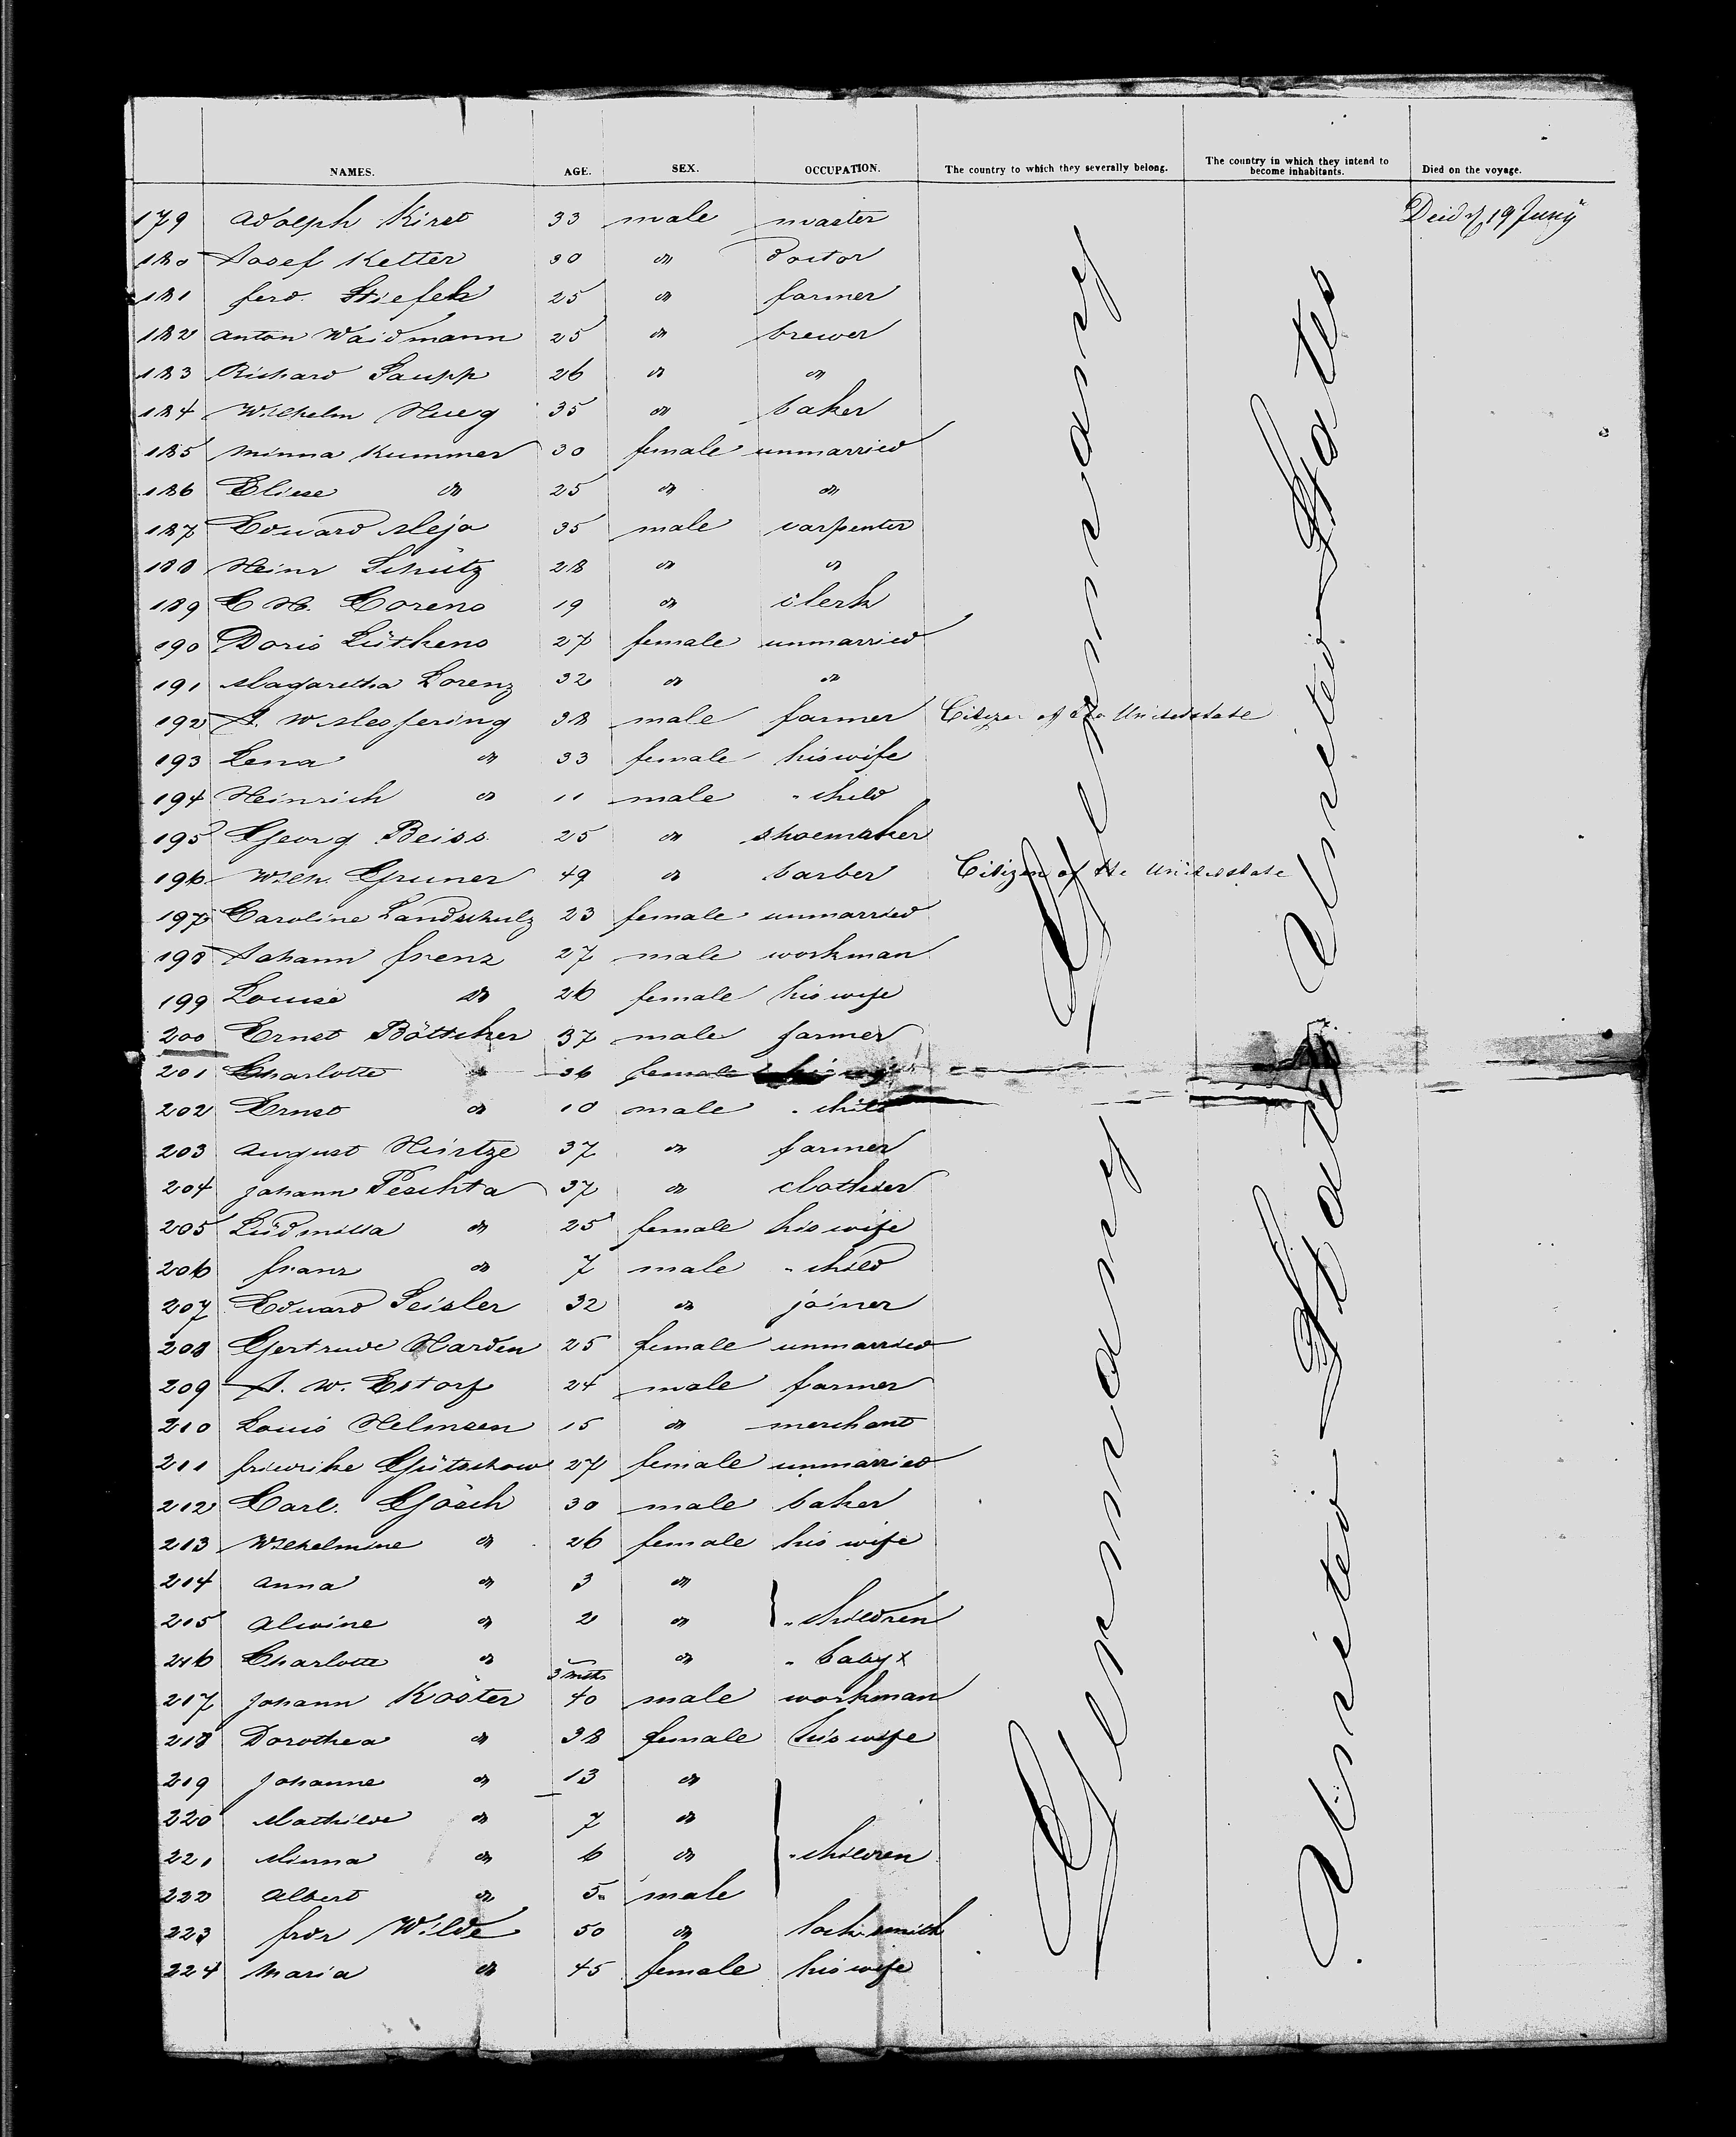 NAMES. AGE. SEX. OCCUPATION. The country to which they severally belong. The country in which they intend to become inhabitants. Died on the voyage.
179 Adolph Kirst 33 male master 19 Juny
180 Josef Ketter 30 " doctor
181 ferd. Stiefel 25 " farmer
182 Anton Waidmann 25 " brewer
183 Richard Saupp 26 " "
184 Wilhelm Hueg 35 " baker
185 Minna Kummer 30 female unmarried
186 Eliese " 25 " "
187 Eduard Mejo 35 male carpenter
188 Heinr Schütz 28 " "
189 C H. Corens 19 " clerk
190 Doris Lüthens 27 female unmarried
191 Magaretha Lorenz 32 " "
192 A. W. Mesfering 38 male farmer Citizen of the Unitedstate
193 Lena " 33 female his wife
194 Heinrich " 11 male " child
195 Georg Beiss 25 " shoemaker
196 Wilh. Gruner 49 " barber Citizen of the Unitedstate
197 Caroline Landschulz 23 female unmarried
198 Johann frenz 27 male workman
199 Louise " 26 female his wife
200 Ernst Böttcher 37 male farmer
201 Charlotte " 36 female
202 Ernst " 10 male " child
203 August Hintze 37 " farmer
204 Johann Peschta 37 " clothier
205 Lüdmilla " 25 female his wife
206 franz " 7 male " child
207 Eduard Seisler 32 " joiner
208 Gertrude Harden 25 female unmarried
209 A. W. Estorf 24 male farmer
210 Louis Helmsen 15 " merchant
211 friedrike Gütschow 27 female unmarried
212 Carl. Gösch 30 male baker
213 Wilhelmine " 26 female his wife
214 Anna " 3 "
215 Alwine " 2 " " children
216 Charlotte " 3 mths " " baby x
217 Johann Köster 40 male workman
218 Dorothea " 38 female his wife
219 Johanne " 13 "
220 Mathilde " 7 "
221 Minna " 6 " " children
222 Albert " 5 male
223 frdr Wilde 50 " locksmith
224 Maria " 45 female his wife
Germany
United States
Germany
United States